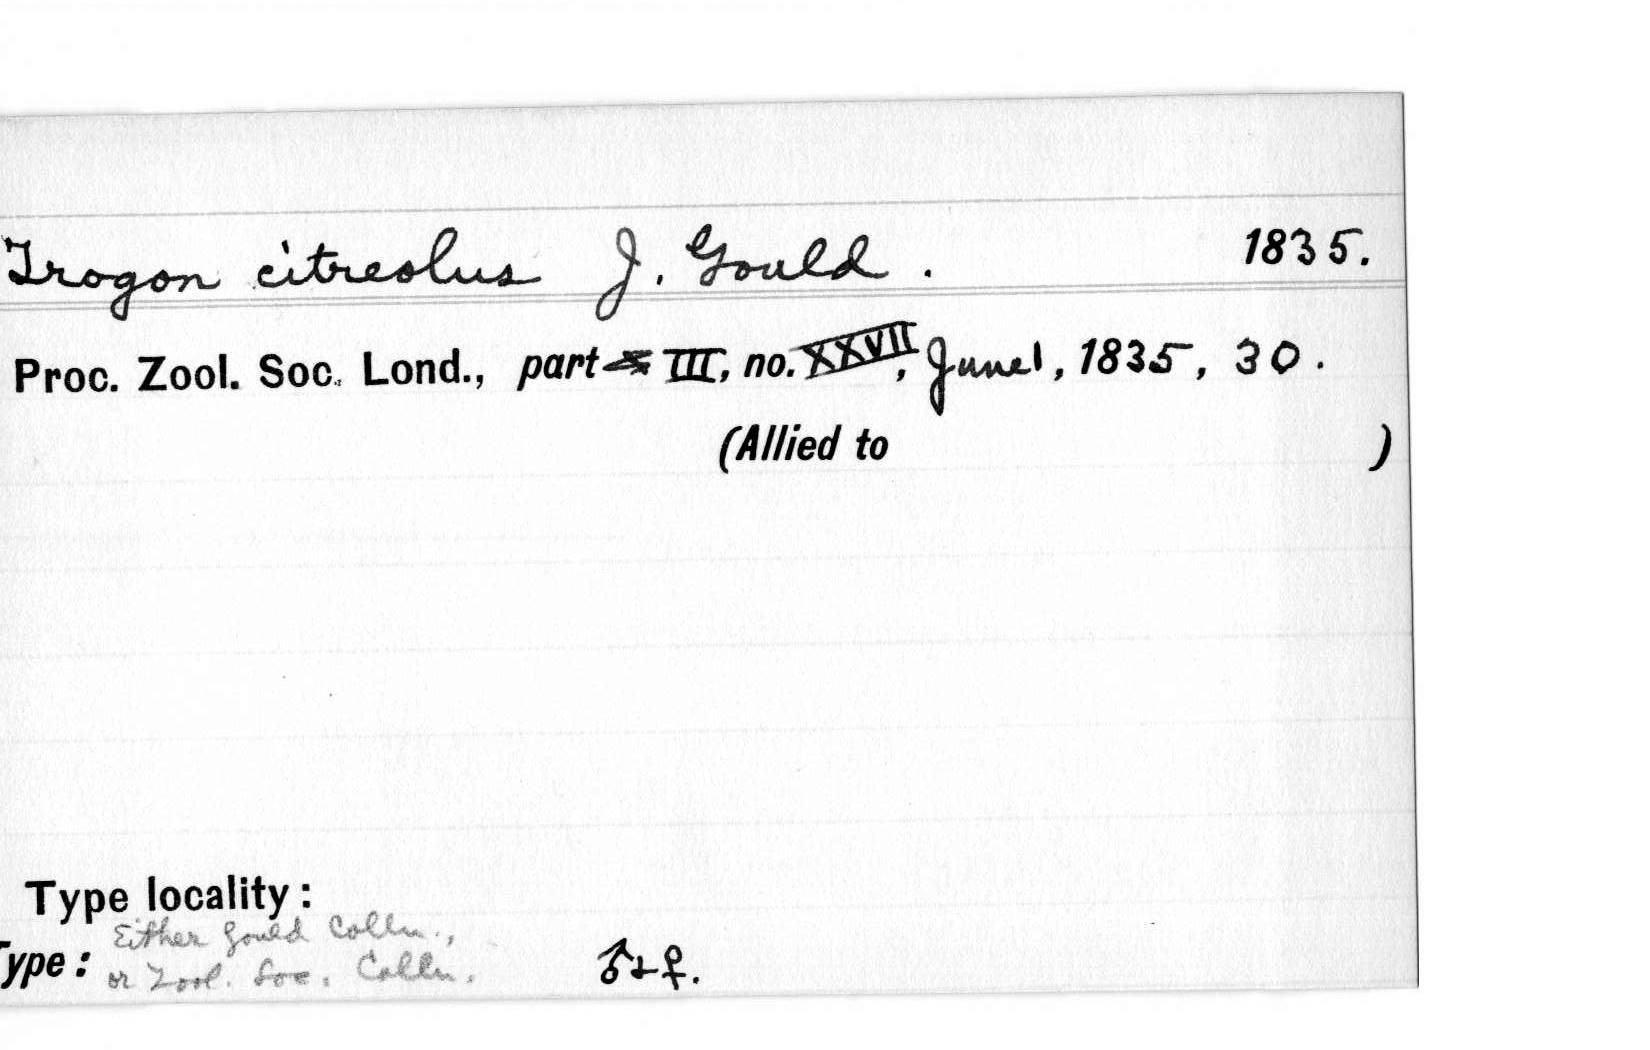 Trogon citreolus J. Gould. 1835.
Proc. Zool. Soc. Lond., part III, no. XXVII, June 1, 1835, 30.
(Allied to )
Type locality:
Type: Either Gould Colln.,
or Zool. Soc. Colln. ♂ + ♀.